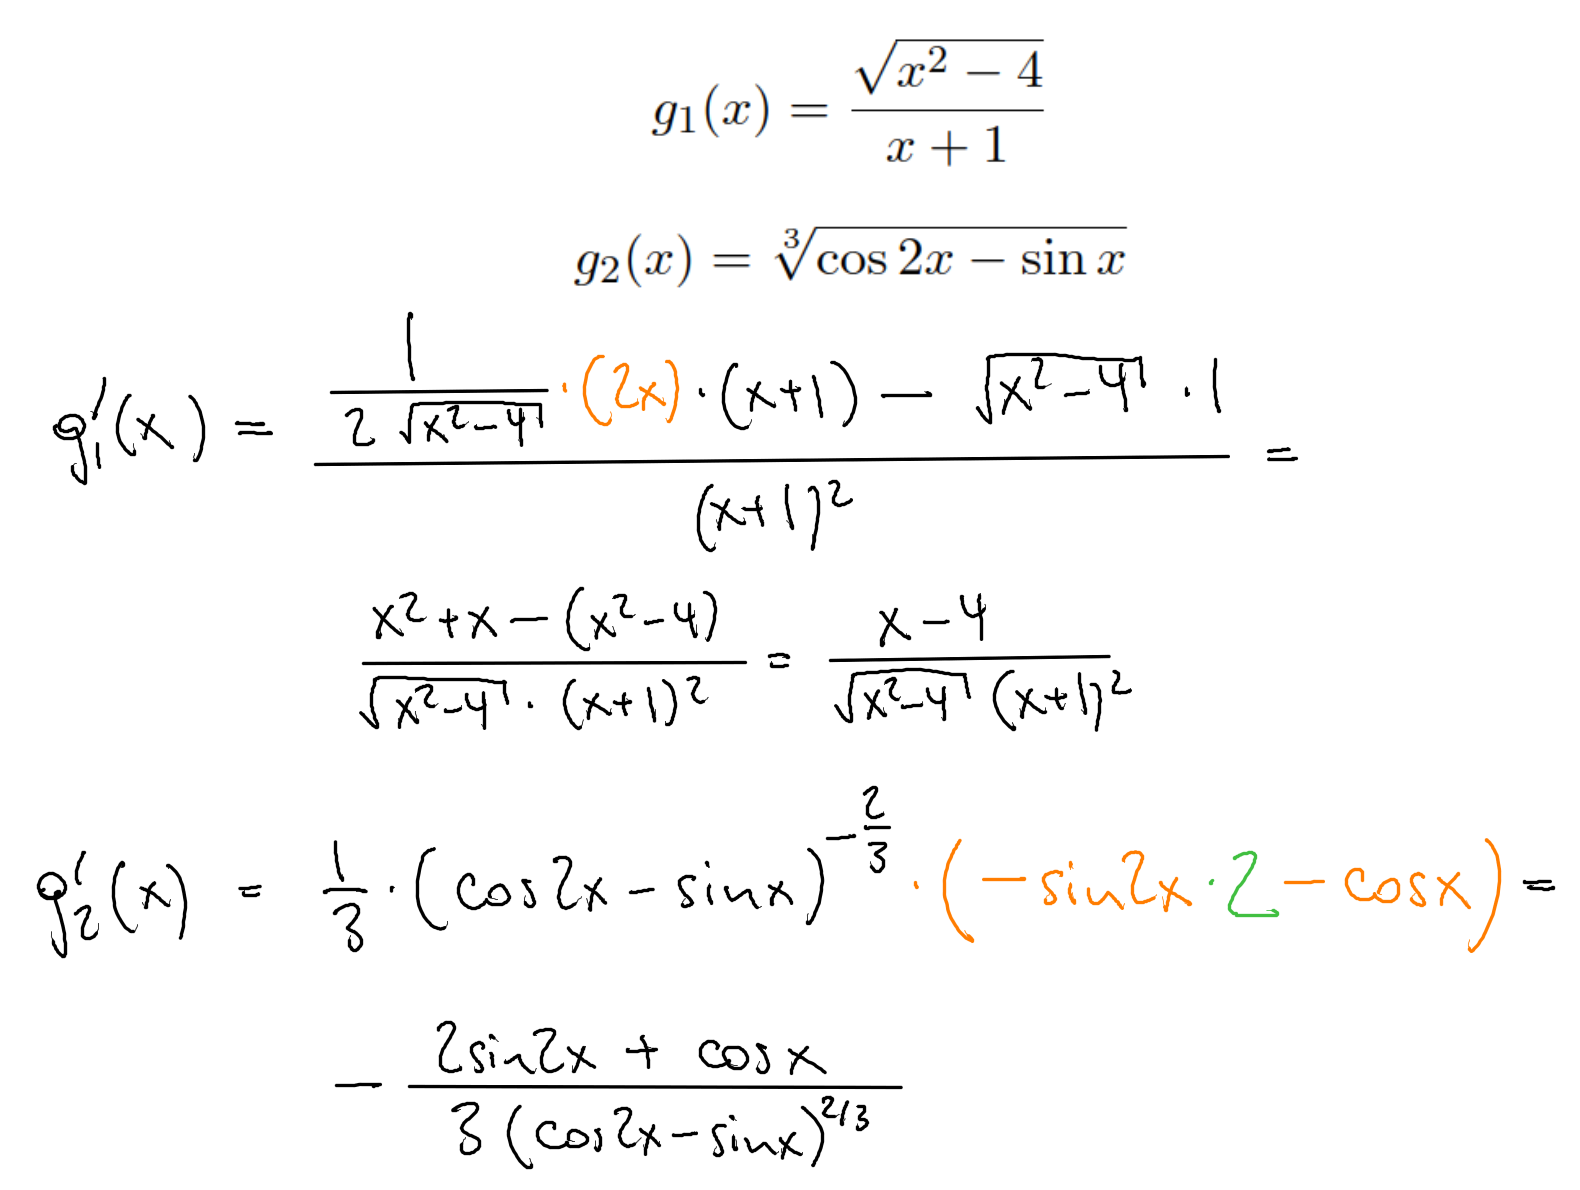 g₁(x) = √(x² − 4) / (x + 1)
g₂(x) = ∛(cos 2x − sin x)
g₁'(x) = (1 / (2√(x²−4)) · (2x) · (x+1) − √(x²−4) · 1) / (x+1)² =
(x² + x − (x²−4)) / (√(x²−4) · (x+1)²) = (x−4) / (√(x²−4) (x+1)²)
g₂'(x) = 1/3 · (cos2x − sinx)^(−2/3) · (−sin2x · 2 − cosx) =
− (2sin2x + cosx) / (3 (cos2x − sinx)^(2/3))